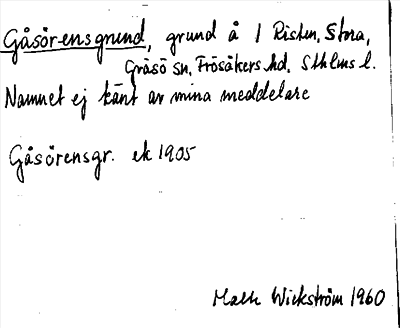 Gåsörensgrund, grund å / Risten, Stora,
Gräsö sn, Frösåkers hd, Sthlms l.
Namnet ej känt av mina meddelare
Gåsörensgr. ek 1905
Wickström 1960